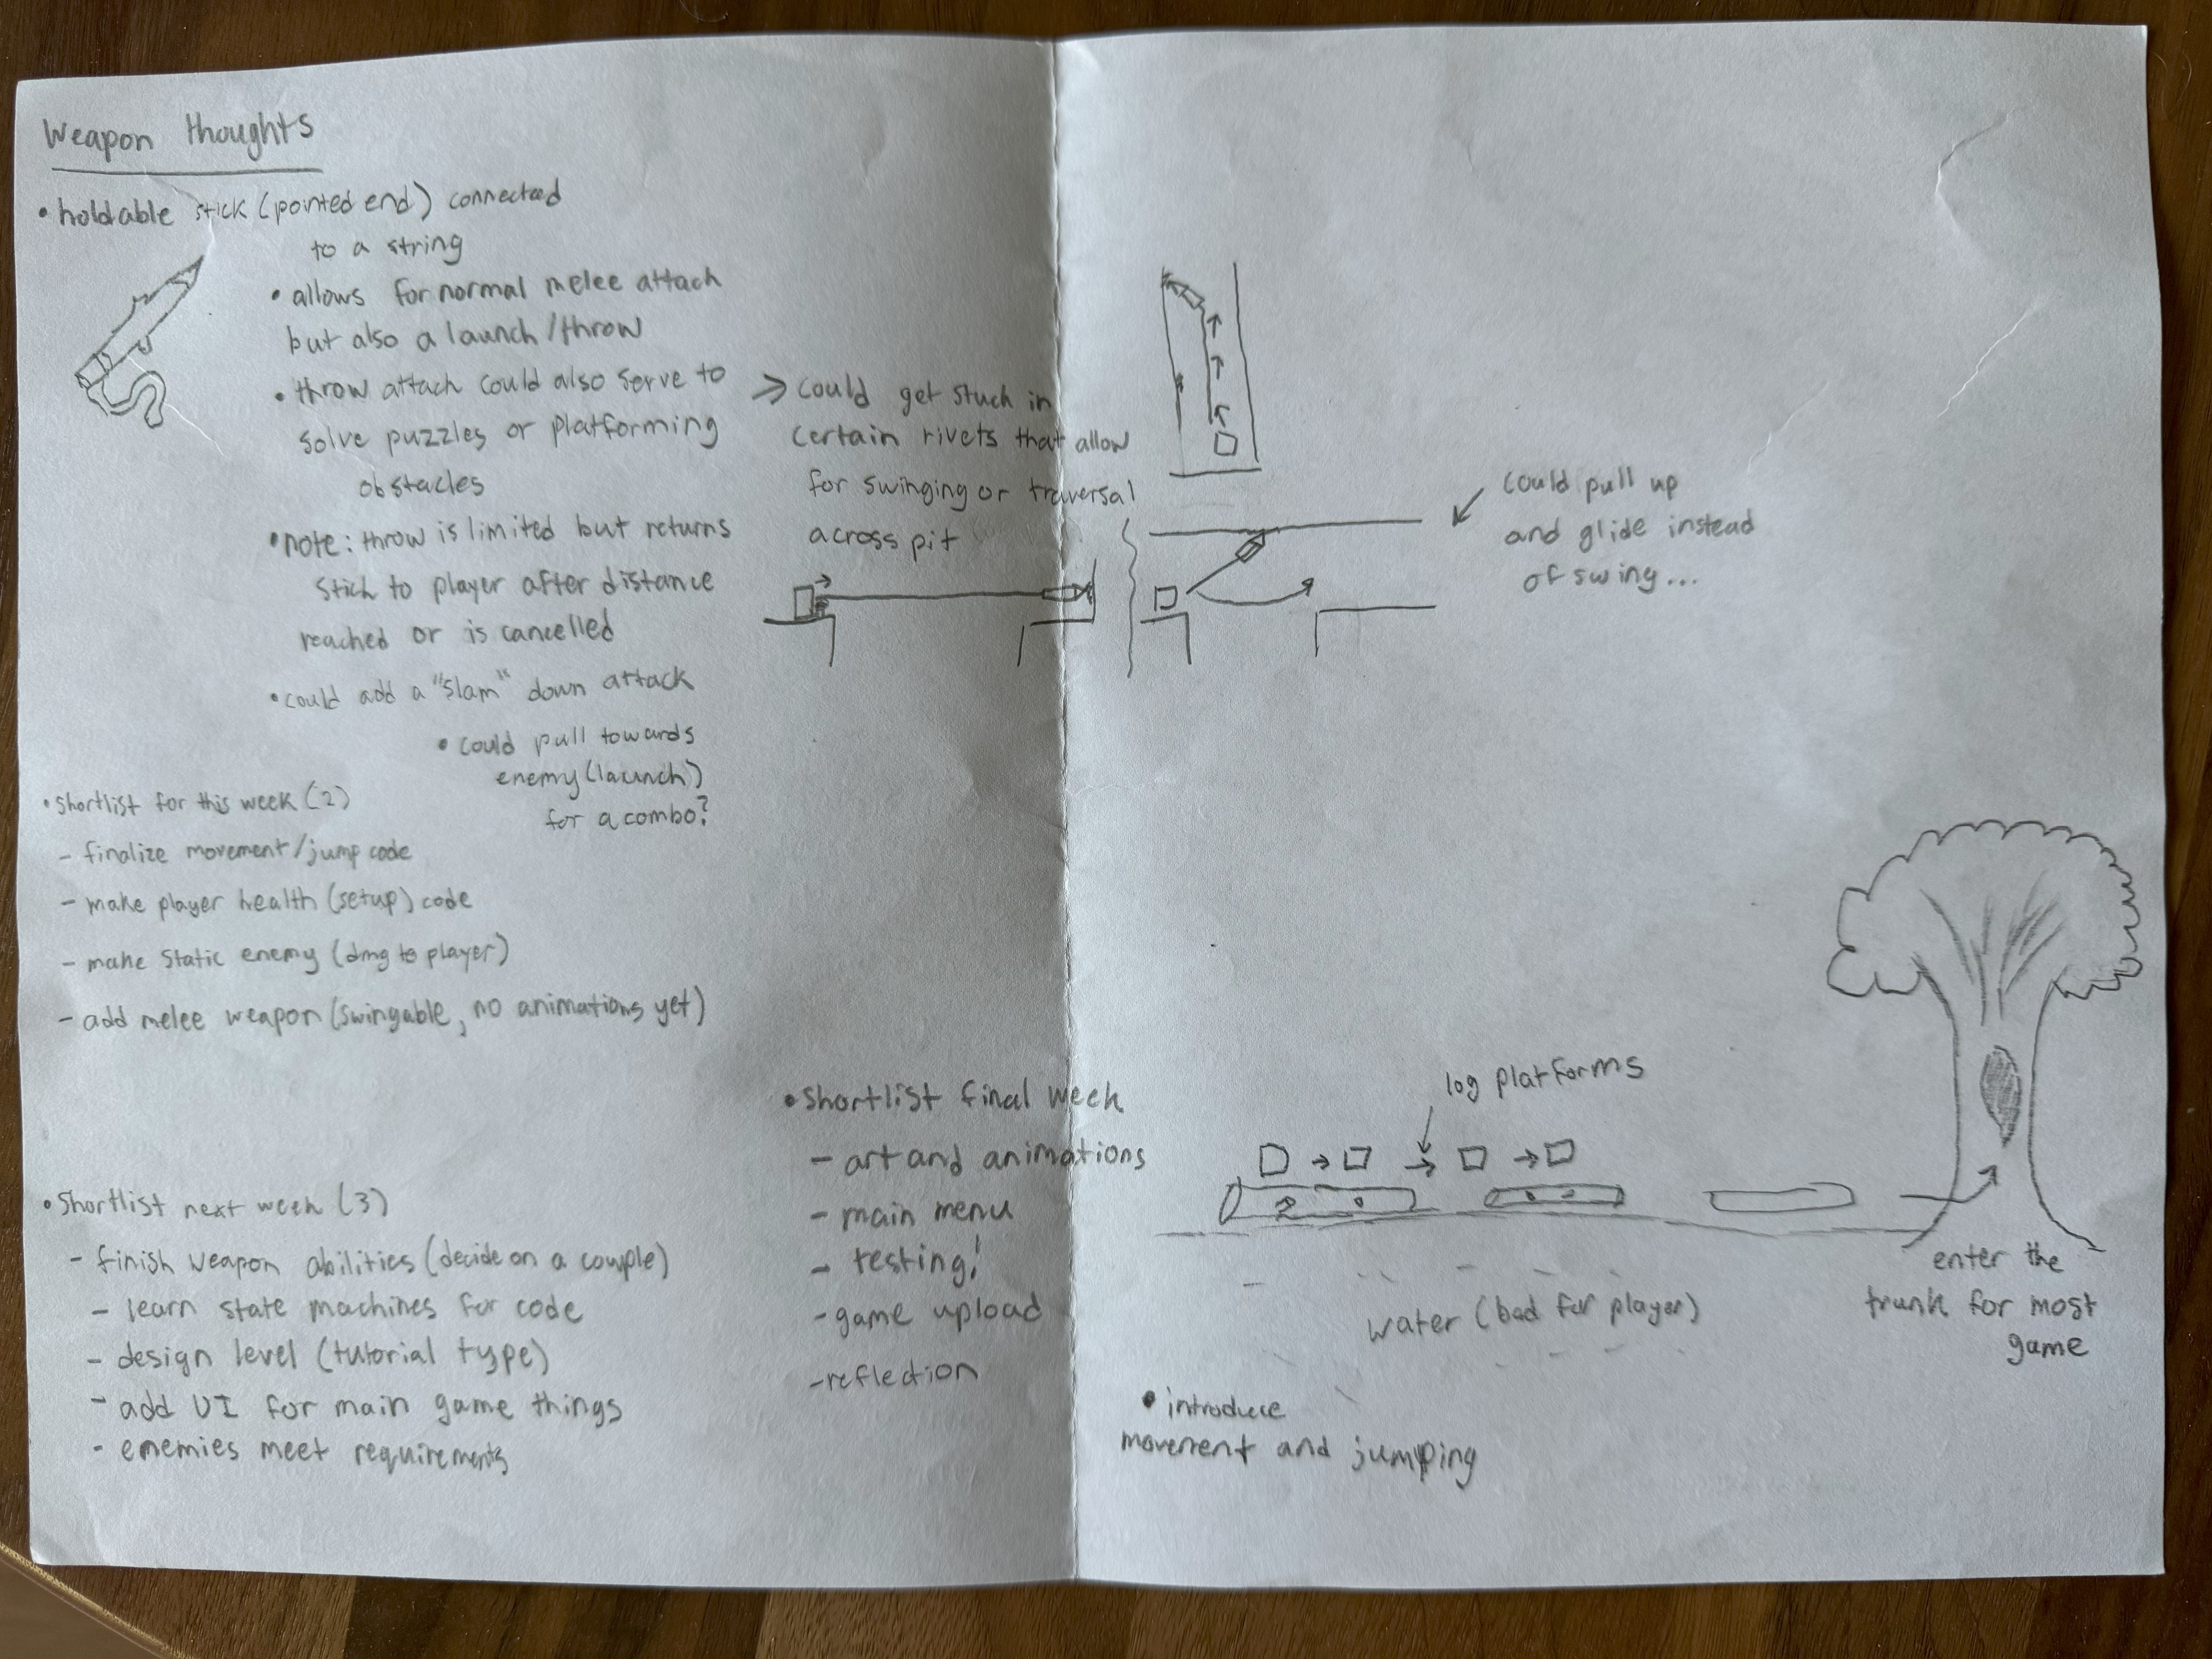 Weapon thoughts
• holdable stick (pointed end) connected
to a string
• allows for normal melee attach
but also a launch/throw
• throw attach could also serve to
solve puzzles or platforming
obstacles
• note: throw is limited but returns
stick to player after distance
reached or is cancelled
• could add a "slam" down attack
• could pull towards
enemy (launch)
for a combo?
> could get stuck in
certain rivets that allow
for swinging or traversal
across pit
could pull up
and glide instead
of swing...
• shortlist for this week (2)
- finalize movement/jump code
- make player health (setup) code
- make static enemy (dmg to player)
- add melee weapon (swingable, no animations yet)
• Shortlist next week (3)
- finish weapon abilities (decide on a couple)
- learn state machines for code
- design level (tutorial type)
- add UI for main game things
- enemies meet requirements
• shortlist final week
- art and animations
- main menu
- testing!
- game upload
- reflection
log platforms
water (bad for player)
enter the
trunk for most
game
• introduce
movement and jumping